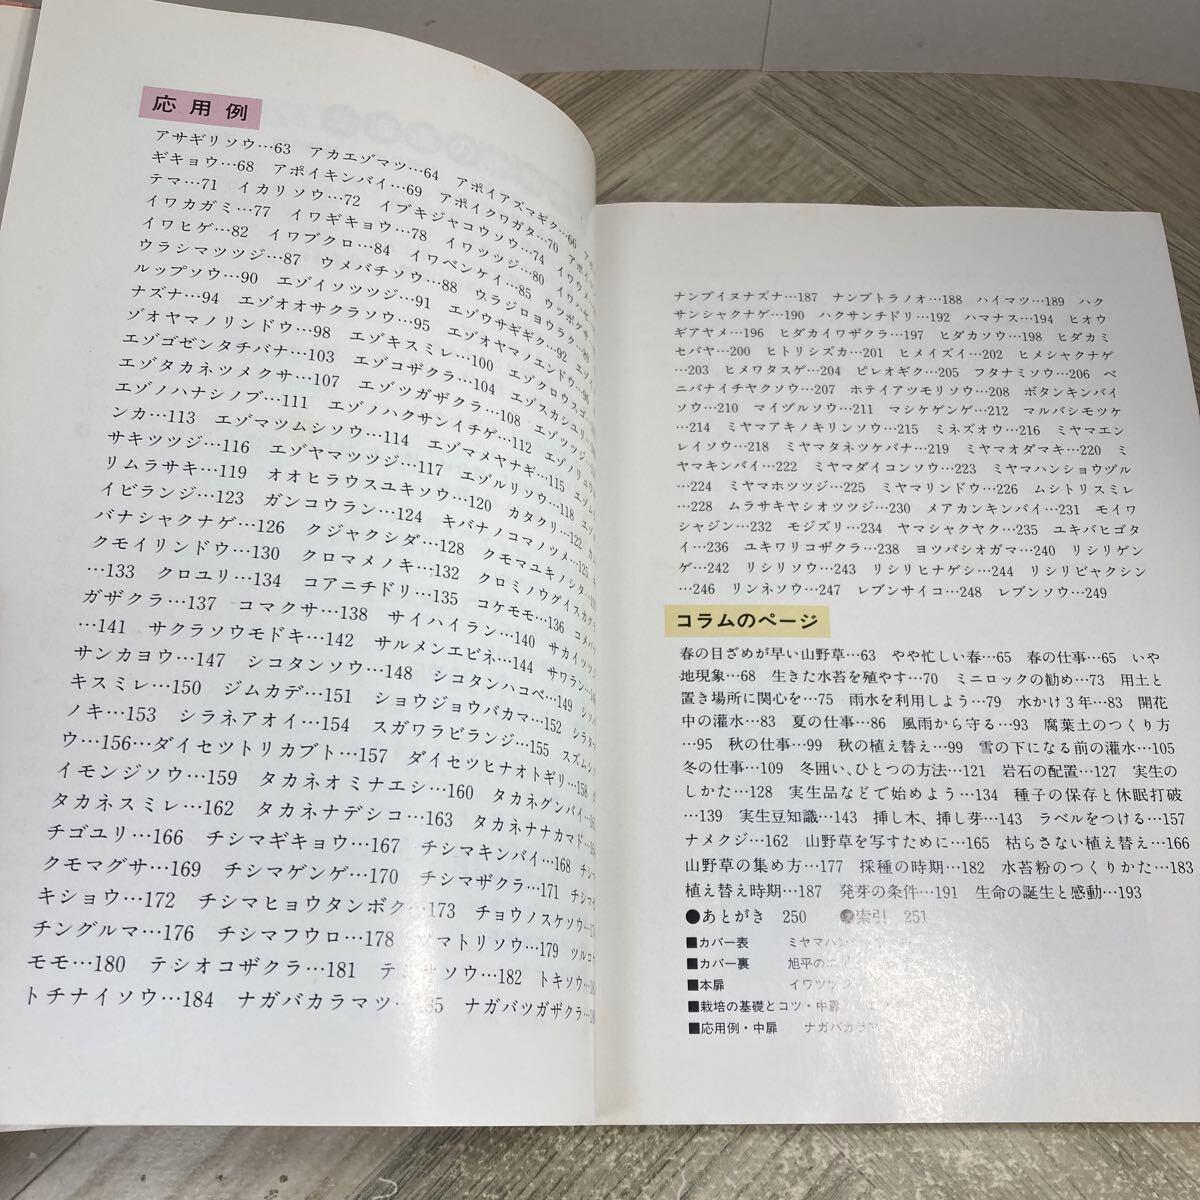 応用例
アサギリソウ…63　アカエゾマツ…64　アポイアズマギク…66　アポ
ギキョウ…68　アポイキンバイ…69　アポイクワガタ…70　アポイ
テマ…71　イカリソウ…72　イブキジャコウソウ…74　イワウメ
イワカガミ…77　イワギキョウ…78　イワツツジ…80　イワ
イワヒゲ…82　イワブクロ…84　イワベンケイ…85　ウツボグサ
ウラシマツツジ…87　ウメバチソウ…88　ウラジロヨウラク
ルップソウ…90　エゾイソツツジ…91　エゾウサギギク…92
ナズナ…94　エゾオオサクラソウ…95　エゾオヤマノエンドウ
ゾオヤマノリンドウ…98　エゾキスミレ…100　エゾクロウスゴ
エゾゴゼンタチバナ…103　エゾコザクラ…104　エゾスカシユリ
エゾタカネツメクサ…107　エゾツガザクラ…108　エゾツツジ
エゾノハナシノブ…111　エゾノハクサンイチゲ…112　エゾノリュウ
ンカ…113　エゾマツムシソウ…114　エゾマメヤナギ…115　エゾ
サキツツジ…116　エゾヤマツツジ…117　エゾルリソウ…118
リムラサキ…119　オオヒラウスユキソウ…120　カタクリ…122
イビランジ…123　ガンコウラン…124　キバナノコマノツメ…125
バナシャクナゲ…126　クジャクシダ…128　クモマユキノシタ
クモイリンドウ…130　クロマメノキ…132　クロミノウグイスカグラ
…133　クロユリ…134　コアニチドリ…135　コケモモ…136　コメバ
ガザクラ…137　コマクサ…138　サイハイラン…140　サカイツツジ
…141　サクラソウモドキ…142　サルメンエビネ…144　サワラン
サンカヨウ…147　シコタンソウ…148　シコタンハコベ…149
キスミレ…150　ジムカデ…151　ショウジョウバカマ…152　シラタマ
ノキ…153　シラネアオイ…154　スガワラビランジ…155　スズムシ
ウ…156…ダイセツトリカブト…157　ダイセツヒナオトギリ…158
イモンジソウ…159　タカネオミナエシ…160　タカネグンバイ
タカネスミレ…162　タカネナデシコ…163　タカネナナカマド
チゴユリ…166　チシマギキョウ…167　チシマキンバイ…168　チシ
クモマグサ…169　チシマゲンゲ…170　チシマザクラ…171　チシマ
キショウ…172　チシマヒョウタンボク…173　チョウノスケソウ
チングルマ…176　チシマフウロ…178　マトリソウ…179　ツルコ
モモ…180　テシオコザクラ…181　ソウ…182　トキソウ
トチナイソウ…184　ナガバカラマツ…185　ナガバツガザクラ
ナンブイヌナズナ…187　ナンブトラノオ…188　ハイマツ…189　ハク
サンシャクナゲ…190　ハクサンチドリ…192　ハマナス…194　ヒオウ
ギアヤメ…196　ヒダカイワザクラ…197　ヒダカソウ…198　ヒダカミ
セバヤ…200　ヒトリシズカ…201　ヒメイズイ…202　ヒメシャクナゲ
…203　ヒメワタスゲ…204　ピレオギク…205　フタナミソウ…206　ベ
ニバナイチヤクソウ…207　ホテイアツモリソウ…208　ボタンキンバイ
ソウ…210　マイヅルソウ…211　マシケゲンゲ…212　マルバシモツケ
…214　ミヤマアキノキリンソウ…215　ミネズオウ…216　ミヤマエン
レイソウ…218　ミヤマタネツケバナ…219　ミヤマオダマキ…220　ミ
ヤマキンバイ…222　ミヤマダイコンソウ…223　ミヤマハンショウヅル
…224　ミヤマホツツジ…225　ミヤマリンドウ…226　ムシトリスミレ
…228　ムラサキヤシオツツジ…230　メアカンキンバイ…231　モイワ
シャジン…232　モジズリ…234　ヤマシャクヤク…235　ユキバヒゴタ
イ…236　ユキワリコザクラ…238　ヨツバシオガマ…240　リシリゲン
ゲ…242　リシリソウ…243　リシリヒナゲシ…244　リシリビャクシン
…246　リンネソウ…247　レブンサイコ…248　レブンソウ…249
コラムのページ
春の目ざめが早い山野草…63　やや忙しい春…65　春の仕事…65　いや
地現象…68　生きた水苔を殖やす…70　ミニロックの勧め…73　用土と
置き場所に関心を…75　雨水を利用しよう…79　水かけ3年…83　開花
中の灌水…83　夏の仕事…86　風雨から守る…93　腐葉土のつくり方
…95　秋の仕事…99　秋の植え替え…99　雪の下になる前の灌水…105
冬の仕事…109　冬囲い、ひとつの方法…121　岩石の配置…127　実生の
しかた…128　実生品などで始めよう…134　種子の保存と休眠打破
…139　実生豆知識…143　挿し木、挿し芽…143　ラベルをつける…157
ナメクジ…162　山野草を写すために…165　枯らさない植え替え…166
山野草の集め方…177　採種の時期…182　水苔粉のつくりかた…183
植え替え時期…187　発芽の条件…191　生命の誕生と感動…193
●あとがき　250　●索引　251
■カバー表　ミヤマハン
■カバー裏　旭平の
■本扉　イワツツジ
■栽培の基礎とコツ・中扉
■応用例・中扉　ナガバカラマ